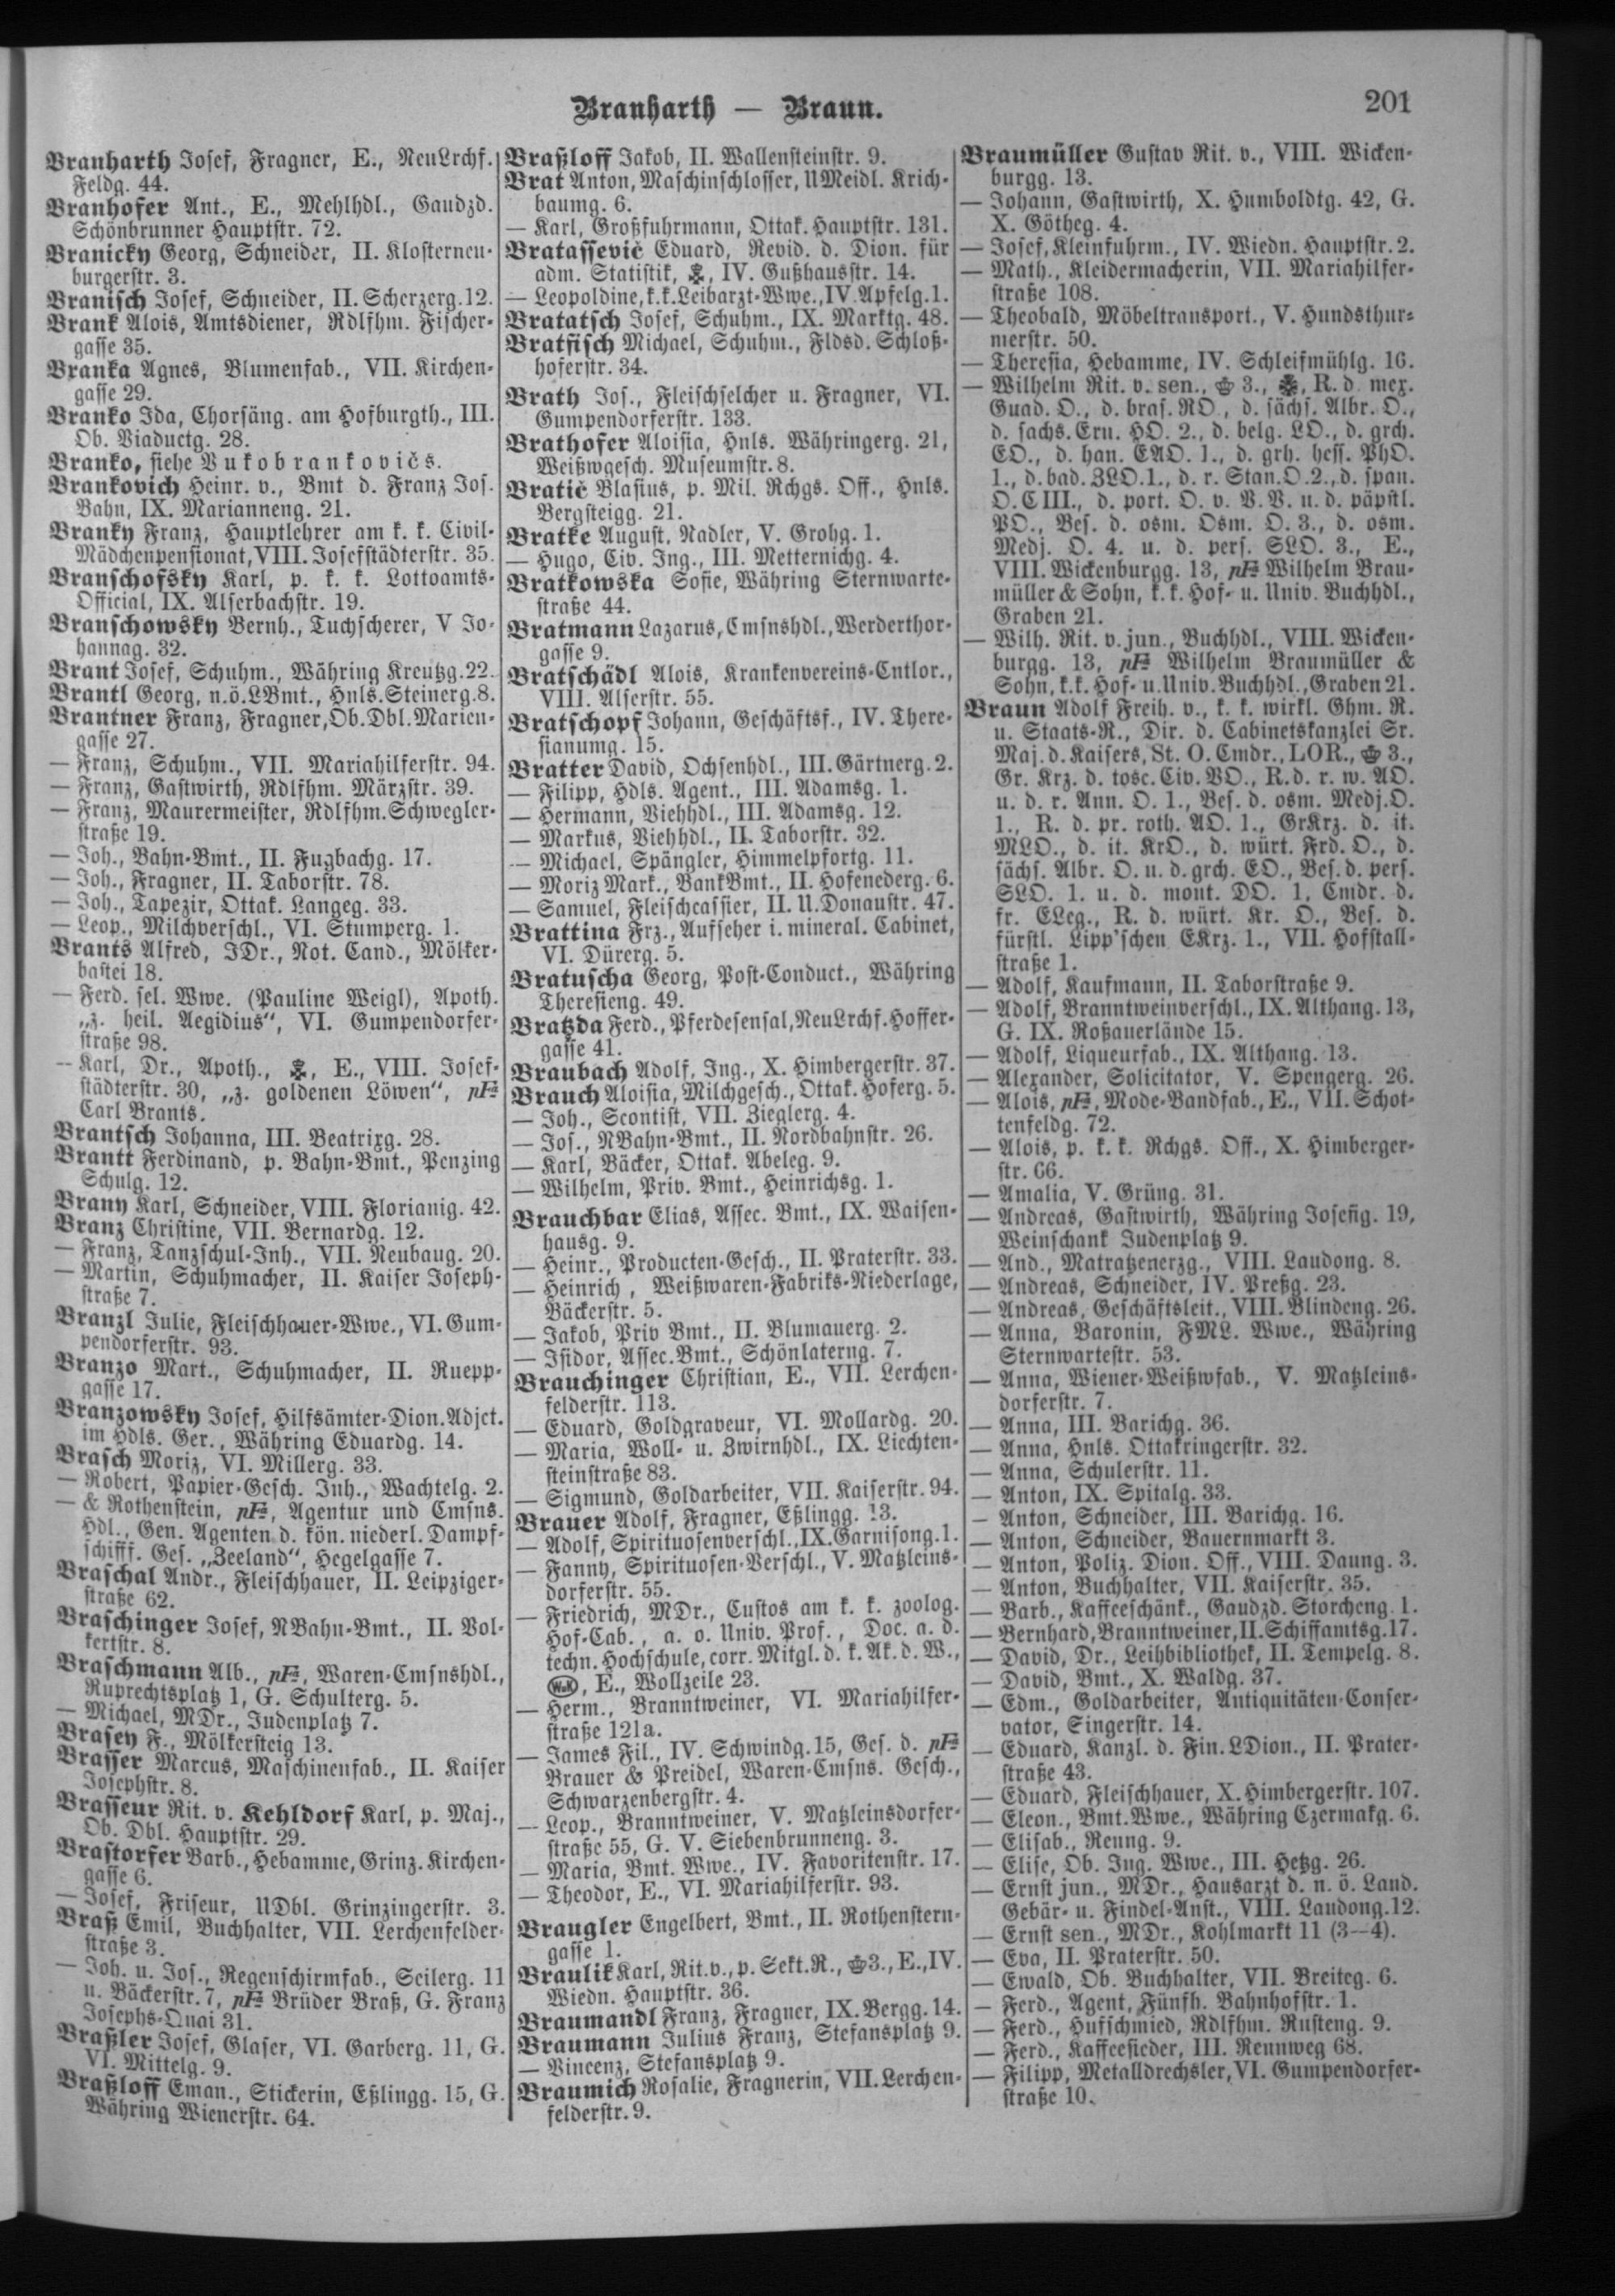 Branharth — Braun.
201
Branharth Josef, Fragner, E., NeuLrchf.
Feldg. 44.
Branhofer Ant., E., Mehlhdl., Gaudzd.
Schönbrunner Hauptstr. 72.
Branicky Georg, Schneider, II. Klosterneu-
burgerstr. 3.
Branisch Josef, Schneider, II. Scherzerg. 12.
Brank Alois, Amtsdiener, Rdlfhm. Fischer-
gasse 35.
Branka Agnes, Blumenfab., VII. Kirchen-
gasse 29.
Branko Ida, Chorsäng. am Hofburgth., III.
Ob. Viaductg. 28.
Branko, siehe Vukobrankovičs.
Brankovich Heinr. v., Bmt d. Franz Jos.
Bahn, IX. Marianneng. 21.
Branky Franz, Hauptlehrer am k. k. Civil-
Mädchenpensionat, VIII. Josefstädterstr. 35.
Branschofsky Karl, p. k. k. Lottoamts-
Official, IX. Alserbachstr. 19.
Branschowsky Bernh., Tuchscherer, V Jo-
hannag. 32.
Brant Josef, Schuhm., Währing Kreutzg. 22.
Brantl Georg, n.ö. LBmt., Hnls. Steinerg. 8.
Brantner Franz, Fragner, Ob. Dbl. Marien-
gasse 27.
— Franz, Schuhm., VII. Mariahilferstr. 94.
— Franz, Gastwirth, Rdlfhm. Märzstr. 39.
— Franz, Maurermeister, Rdlfhm. Schwegler-
straße 19.
— Joh., Bahn-Bmt., II. Fugbachg. 17.
— Joh., Fragner, II. Taborstr. 78.
— Joh., Tapezir, Ottak. Langeg. 33.
— Leop., Milchverschl., VI. Stumperg. 1.
Brants Alfred, JDr., Not. Cand., Mölker-
bastei 18.
— Ferd. sel. Wwe. (Pauline Weigl), Apoth.
„z. heil. Aegidius“, VI. Gumpendorfer-
straße 98.
— Karl, Dr., Apoth., E., VIII. Josef-
städterstr. 30, „z. goldenen Löwen“, pFa
Carl Brants.
Brantsch Johanna, III. Beatrixg. 28.
Brantt Ferdinand, p. Bahn-Bmt., Penzing
Schulg. 12.
Brany Karl, Schneider, VIII. Florianig. 42.
Branz Christine, VII. Bernardg. 12.
— Franz, Tanzschul-Inh., VII. Neubaug. 20.
— Martin, Schuhmacher, II. Kaiser Joseph-
straße 7.
Branzl Julie, Fleischhauer-Wwe., VI. Gum-
pendorferstr. 93.
Branzo Mart., Schuhmacher, II. Ruepp-
gasse 17.
Branzowsky Josef, Hilfsämter-Dion. Adjct.
im Hdls. Ger., Währing Eduardg. 14.
Brasch Moriz, VI. Millerg. 33.
— Robert, Papier-Gesch. Inh., Wachtelg. 2.
— & Rothenstein, pFa, Agentur und Cmsns.
Hdl., Gen. Agenten d. kön. niederl. Dampf-
schifff. Ges. „Zeeland“, Hegelgasse 7.
Braschal Andr., Fleischhauer, II. Leipziger-
straße 62.
Braschinger Josef, NBahn-Bmt., II. Vol-
kertstr. 8.
Braschmann Alb., pFa, Waren-Cmsnshdl.,
Ruprechtsplatz 1, G. Schulterg. 5.
— Michael, MDr., Judenplatz 7.
Brasey F., Mölkersteig 13.
Brasser Marcus, Maschinenfab., II. Kaiser
Josephstr. 8.
Brasseur Rit. v. Kehldorf Karl, p. Maj.,
Ob. Dbl. Hauptstr. 29.
Brastorfer Barb., Hebamme, Grinz. Kirchen-
gasse 6.
— Josef, Friseur, UDbl. Grinzingerstr. 3.
Braß Emil, Buchhalter, VII. Lerchenfelder-
straße 3.
— Joh. u. Jos., Regenschirmfab., Seilerg. 11
u. Bäckerstr. 7, pFa Brüder Braß, G. Franz
Josephs-Quai 31.
Braßler Josef, Glaser, VI. Garberg. 11, G.
VI. Mittelg. 9.
Braßloff Eman., Stickerin, Eßlingg. 15, G.
Währing Wienerstr. 64.
Braßloff Jakob, II. Wallensteinstr. 9.
Brat Anton, Maschinschlosser, UMeidl. Krich-
baumg. 6.
— Karl, Großfuhrmann, Ottak. Hauptstr. 131.
Bratassević Eduard, Revid. d. Dion. für
adm. Statistik, IV. Gußhausstr. 14.
— Leopoldine, k. k. Leibarzt-Wwe., IV. Apfelg. 1.
Bratatsch Josef, Schuhm., IX. Marktg. 48.
Bratfisch Michael, Schuhm., Fldsd. Schloß-
hoferstr. 34.
Brath Jos., Fleischselcher u. Fragner, VI.
Gumpendorferstr. 133.
Brathofer Aloisia, Hnls. Währingerg. 21,
Weißwgesch. Museumstr. 8.
Bratić Blasius, p. Mil. Rchgs. Off., Hnls.
Bergsteigg. 21.
Bratke August, Nadler, V. Grohg. 1.
— Hugo, Civ. Ing., III. Metternichg. 4.
Bratkowska Sofie, Währing Sternwarte-
straße 44.
Bratmann Lazarus, Cmsnshdl., Werderthor-
gasse 9.
Bratschädl Alois, Krankenvereins-Cntlor.,
VIII. Alserstr. 55.
Bratschopf Johann, Geschäftsf., IV. There-
sianumg. 15.
Bratter David, Ochsenhdl., III. Gärtnerg. 2.
— Filipp, Hdls. Agent., III. Adamsg. 1.
— Hermann, Viehhdl., III. Adamsg. 12.
— Markus, Viehhdl., II. Taborstr. 32.
— Michael, Spängler, Himmelpfortg. 11.
— Moriz Mark., BankBmt., II. Hofenederg. 6.
— Samuel, Fleischcassier, II. U. Donaustr. 47.
Brattina Frz., Aufseher i. mineral. Cabinet,
VI. Dürerg. 5.
Bratuscha Georg, Post-Conduct., Währing
Theresieng. 49.
Bratzda Ferd., Pferdesensal, NeuLrchf. Hoffer-
gasse 41.
Braubach Adolf, Ing., X. Himbergerstr. 37.
Brauch Aloisia, Milchgesch., Ottak. Hoferg. 5.
— Joh., Scontist, VII. Zieglerg. 4.
— Jos., NBahn-Bmt., II. Nordbahnstr. 26.
— Karl, Bäcker, Ottak. Abeleg. 9.
— Wilhelm, Priv. Bmt., Heinrichsg. 1.
Brauchbar Elias, Assec. Bmt., IX. Waisen-
hausg. 9.
— Heinr., Producten-Gesch., II. Praterstr. 33.
— Heinrich, Weißwaren-Fabriks-Niederlage,
Bäckerstr. 5.
— Jakob, Priv Bmt., II. Blumauerg. 2.
— Isidor, Assec. Bmt., Schönlaterng. 7.
Brauchinger Christian, E., VII. Lerchen-
felderstr. 113.
— Eduard, Goldgraveur, VI. Mollardg. 20.
— Maria, Woll- u. Zwirnhdl., IX. Liechten-
steinstraße 83.
— Sigmund, Goldarbeiter, VII. Kaiserstr. 94.
Brauer Adolf, Fragner, Eßlingg. 13.
— Adolf, Spirituosenverschl., IX. Garnisong. 1.
— Fanny, Spirituosen-Verschl., V. Matzleins-
dorferstr. 55.
— Friedrich, MDr., Custos am k. k. zoolog.
Hof-Cab., a. o. Univ. Prof., Doc. a. d.
techn. Hochschule, corr. Mitgl. d. k. Ak. d. W.,
WuK, E., Wollzeile 23.
— Herm., Branntweiner, VI. Mariahilfer-
straße 121a.
— James Fil., IV. Schwindg. 15, Ges. d. pFa
Brauer & Preidel, Waren-Cmsns. Gesch.,
Schwarzenbergstr. 4.
— Leop., Branntweiner, V. Matzleinsdorfer-
straße 55, G. V. Siebenbrunneng. 3.
— Maria, Bmt. Wwe., IV. Favoritenstr. 17.
— Theodor, E., VI. Mariahilferstr. 93.
Braugler Engelbert, Bmt., II. Rothenstern-
gasse 1.
Braulik Karl, Rit. v., p. Sekt. R., 3., E., IV.
Wiedn. Hauptstr. 36.
Braumandl Franz, Fragner, IX. Bergg. 14.
Braumann Julius Franz, Stefansplatz 9.
— Vincenz, Stefansplatz 9.
Braumich Rosalie, Fragnerin, VII. Lerchen-
felderstr. 9.
Braumüller Gustav Rit. v., VIII. Wicken-
burgg. 13.
— Johann, Gastwirth, X. Humboldtg. 42, G.
X. Götheg. 4.
— Josef, Kleinfuhrm., IV. Wiedn. Hauptstr. 2.
— Math., Kleidermacherin, VII. Mariahilfer-
straße 108.
— Theobald, Möbeltransport., V. Hundsthur-
merstr. 50.
— Theresia, Hebamme, IV. Schleifmühlg. 16.
— Wilhelm Rit. v. sen., 3., R. d. mex.
Guad. O., d. bras. RO., d. sächs. Albr. O.,
d. sachs. Ern. HO. 2., d. belg. LO., d. grch.
EO., d. han. EAO. 1., d. grh. hess. PhO.
1., d. bad. ZLO. 1., d. r. Stan. O. 2., d. span.
O. C III., d. port. O. v. V. V. u. d. päpstl.
PO., Bes. d. osm. Osm. O. 3., d. osm.
Medj. O. 4. u. d. pers. SLO. 3., E.,
VIII. Wickenburgg. 13, pFa Wilhelm Brau-
müller & Sohn, k. k. Hof- u. Univ. Buchhdl.,
Graben 21.
— Wilh. Rit. v. jun., Buchhdl., VIII. Wicken-
burgg. 13, pFa Wilhelm Braumüller &
Sohn, k. k. Hof- u. Univ. Buchhdl., Graben 21.
Braun Adolf Freih. v., k. k. wirkl. Ghm. R.
u. Staats-R., Dir. d. Cabinetskanzlei Sr.
Maj. d. Kaisers, St. O. Cmdr., LOR., 3.,
Gr. Krz. d. tosc. Civ. VO., R. d. r. w. AO.
u. d. r. Ann. O. 1., Bes. d. osm. Medj. O.
1., R. d. pr. roth. AO. 1., GrKrz. d. it.
MLO., d. it. KrO., d. würt. Frd. O., d.
sächs. Albr. O. u. d. grch. EO., Bes. d. pers.
SLO. 1. u. d. mont. DO. 1, Cmdr. d.
fr. ELeg., R. d. würt. Kr. O., Bes. d.
fürstl. Lipp'schen EKrz. 1., VII. Hofstall-
straße 1.
— Adolf, Kaufmann, II. Taborstraße 9.
— Adolf, Branntweinverschl., IX. Althang. 13,
G. IX. Roßauerlände 15.
— Adolf, Liqueurfab., IX. Althang. 13.
— Alexander, Solicitator, V. Spengerg. 26.
— Alois, pFa, Mode-Bandfab., E., VII. Schot-
tenfeldg. 72.
— Alois, p. k. k. Rchgs. Off., X. Himberger-
str. 66.
— Amalia, V. Grüng. 31.
— Andreas, Gastwirth, Währing Josefig. 19,
Weinschank Judenplatz 9.
— And., Matratzenerzg., VIII. Laudong. 8.
— Andreas, Schneider, IV. Preßg. 23.
— Andreas, Geschäftsleit., VIII. Blindeng. 26.
— Anna, Baronin, FML. Wwe., Währing
Sternwartestr. 53.
— Anna, Wiener-Weißwfab., V. Matzleins-
dorferstr. 7.
— Anna, III. Barichg. 36.
— Anna, Hnls. Ottakringerstr. 32.
— Anna, Schulerstr. 11.
— Anton, IX. Spitalg. 33.
— Anton, Schneider, III. Barichg. 16.
— Anton, Schneider, Bauernmarkt 3.
— Anton, Poliz. Dion. Off., VIII. Daung. 3.
— Anton, Buchhalter, VII. Kaiserstr. 35.
— Barb., Kaffeeschänk., Gaudzd. Storcheng. 1.
— Bernhard, Branntweiner, II. Schiffamtsg. 17.
— David, Dr., Leihbibliothek, II. Tempelg. 8.
— David, Bmt., X. Waldg. 37.
— Edm., Goldarbeiter, Antiquitäten-Conser-
vator, Singerstr. 14.
— Eduard, Kanzl. d. Fin. LDion., II. Prater-
straße 43.
— Eduard, Fleischhauer, X. Himbergerstr. 107.
— Eleon., Bmt. Wwe., Währing Czermakg. 6.
— Elisab., Renng. 9.
— Elise, Ob. Ing. Wwe., III. Hetzg. 26.
— Ernst jun., MDr., Hausarzt d. n. ö. Land.
Gebär- u. Findel-Anst., VIII. Laudong. 12.
— Ernst sen., MDr., Kohlmarkt 11 (3—4).
— Eva, II. Praterstr. 50.
— Ewald, Ob. Buchhalter, VII. Breiteg. 6.
— Ferd., Agent, Fünfh. Bahnhofstr. 1.
— Ferd., Hufschmied, Rdlfhm. Rusteng. 9.
— Ferd., Kaffeesieder, III. Rennweg 68.
— Filipp, Metalldrechsler, VI. Gumpendorfer-
straße 10.